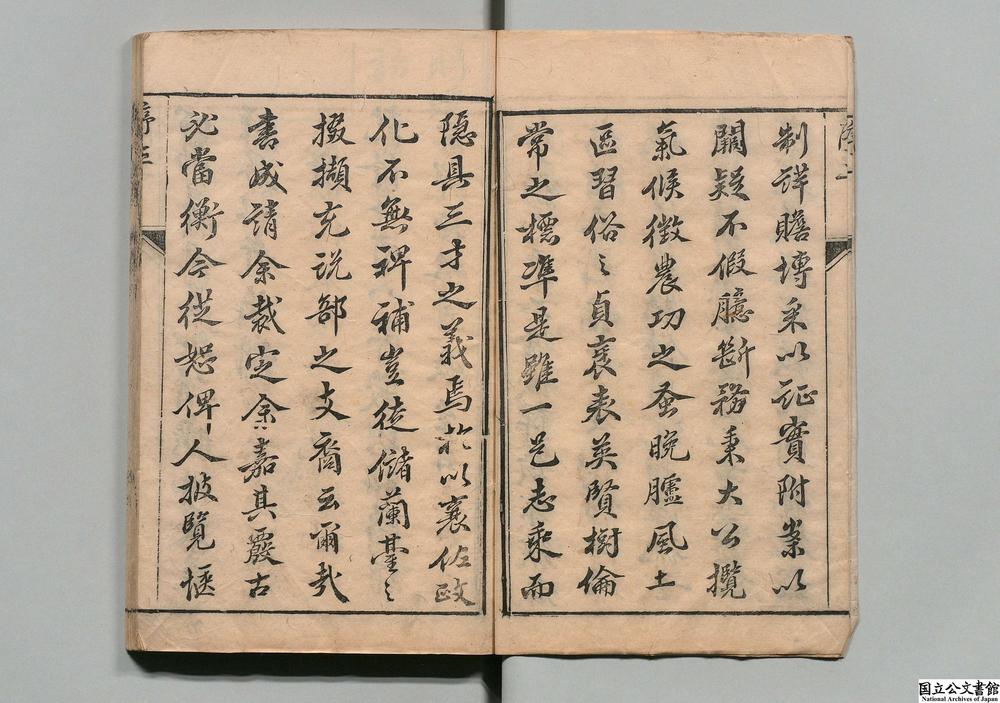 制詳贍博采以証實附案以
闕疑不假臆斷務秉大公攬
氣候徵農功之蚤晚臚風土
區習俗之貞衺表英賢樹倫
常之標準是雖一邑志乘而
隱具三才之義焉於以襄佐政
化不無裨補豈徒儲蘭臺之
掇擷充説部之支裔云爾哉
書成請余裁定余嘉其覈古
必當衡今從恕俾人披覽愜
序三
国立公文書館
National Archives of Japan